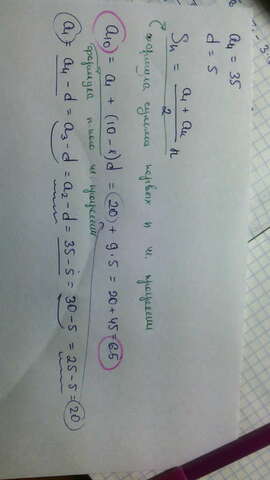 a₄ = 35
d = 5
Sₙ = (a₁ + aₙ)/2 n
(формула суммы первых n чл. прогрессии
a₁₀ = a₁ + (10 - 1)d = 20 + 9 · 5 = 20 + 45 = 65
формула n-ного чл. прогрессии
a₁ = a₄ - d = a₃ - d = a₂ - d = 35 - 5 = 30 - 5 = 25 - 5 = 20